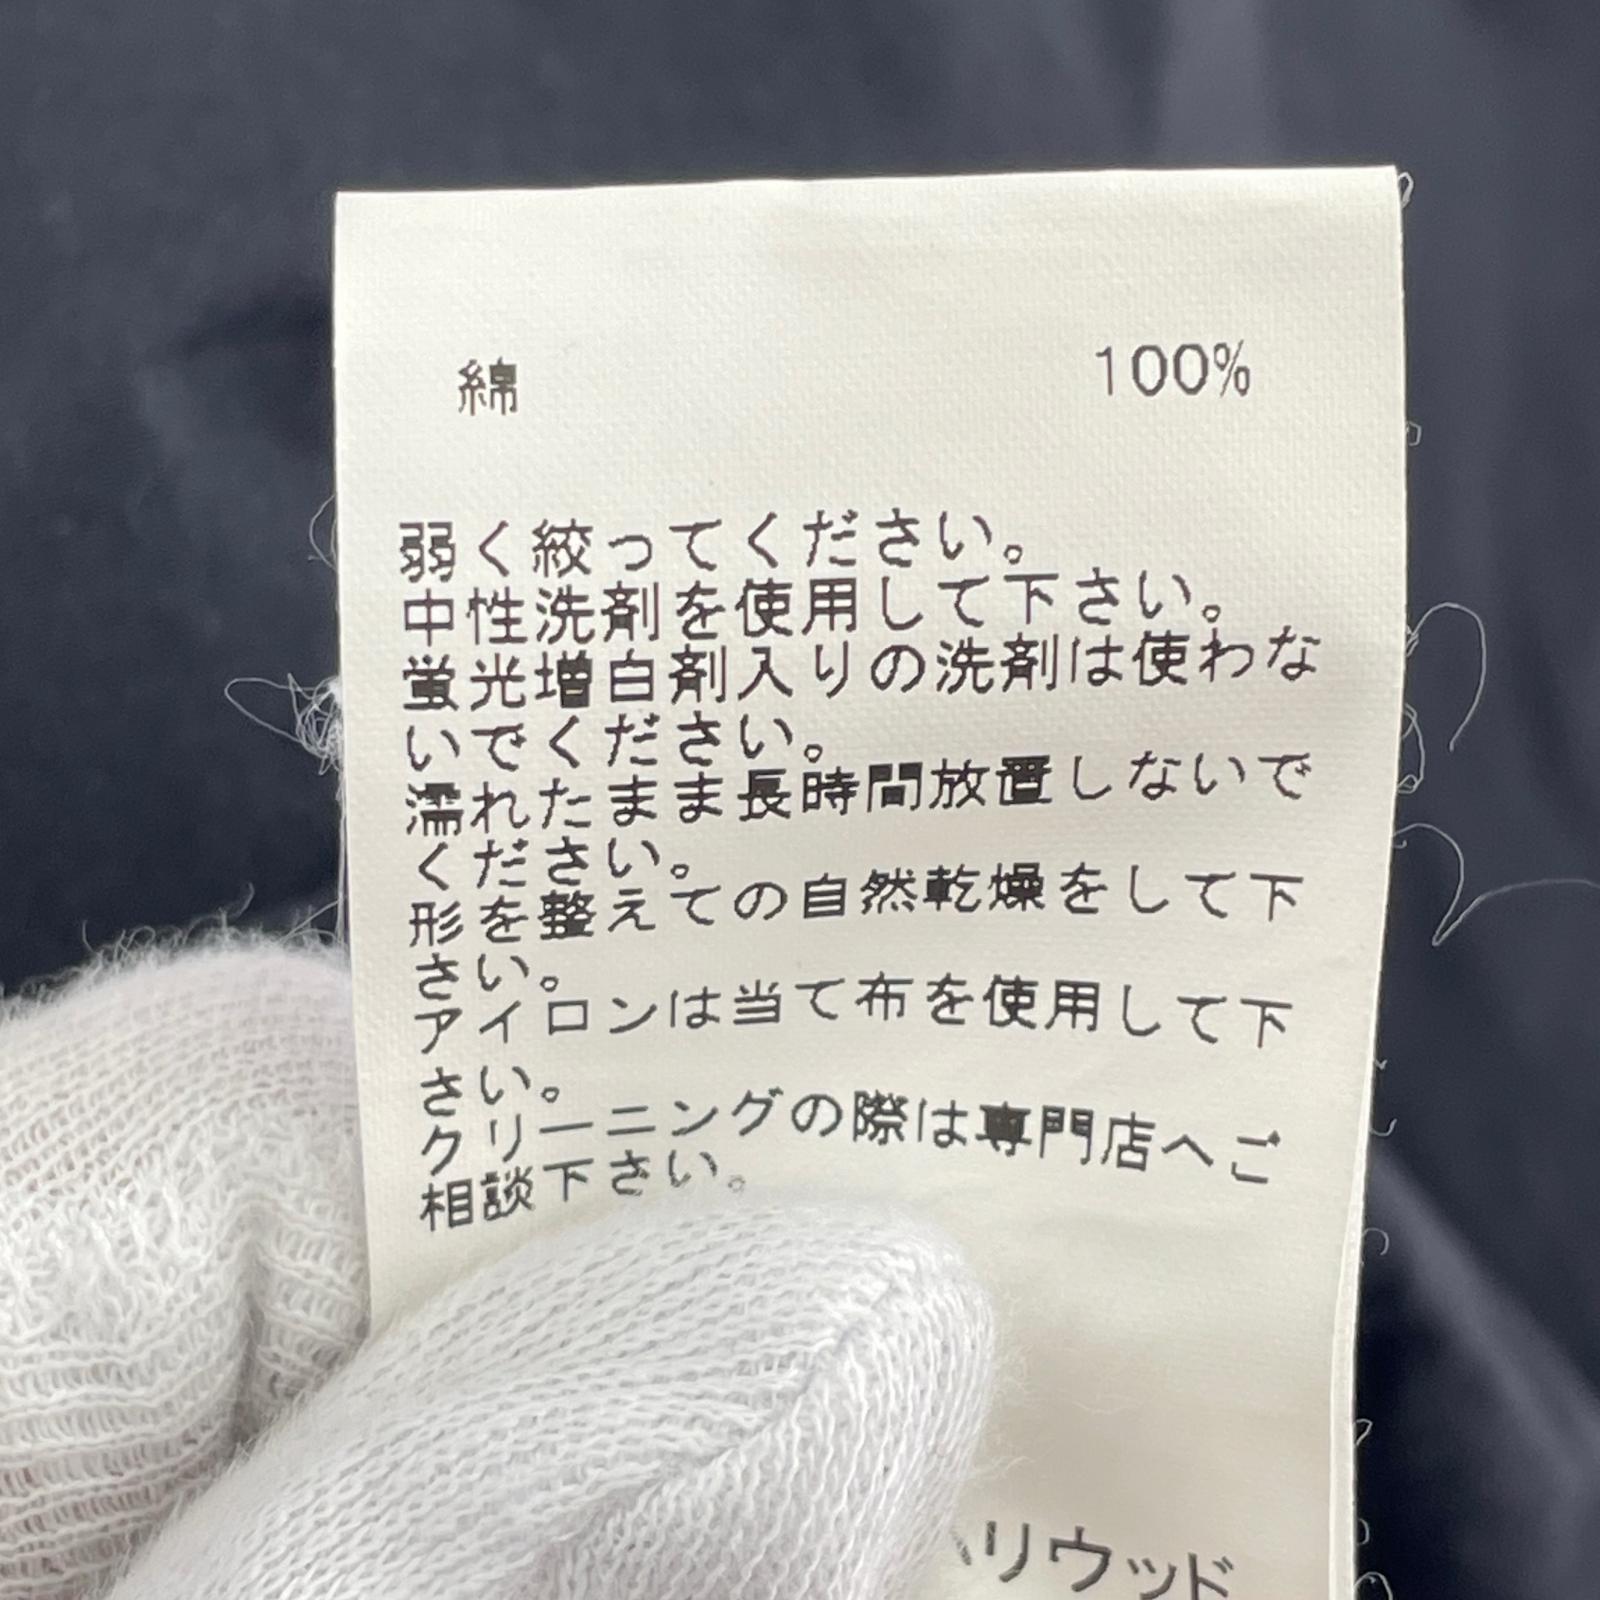 綿 100%
弱く絞ってください。
中性洗剤を使用して下さい。
蛍光増白剤入りの洗剤は使わな
いでください。
濡れたまま長時間放置しないで
ください。
形を整えての自然乾燥をして下
さい。
アイロンは当て布を使用して下
さい。
クリーニングの際は専門店へご
相談下さい。
ハリウッド